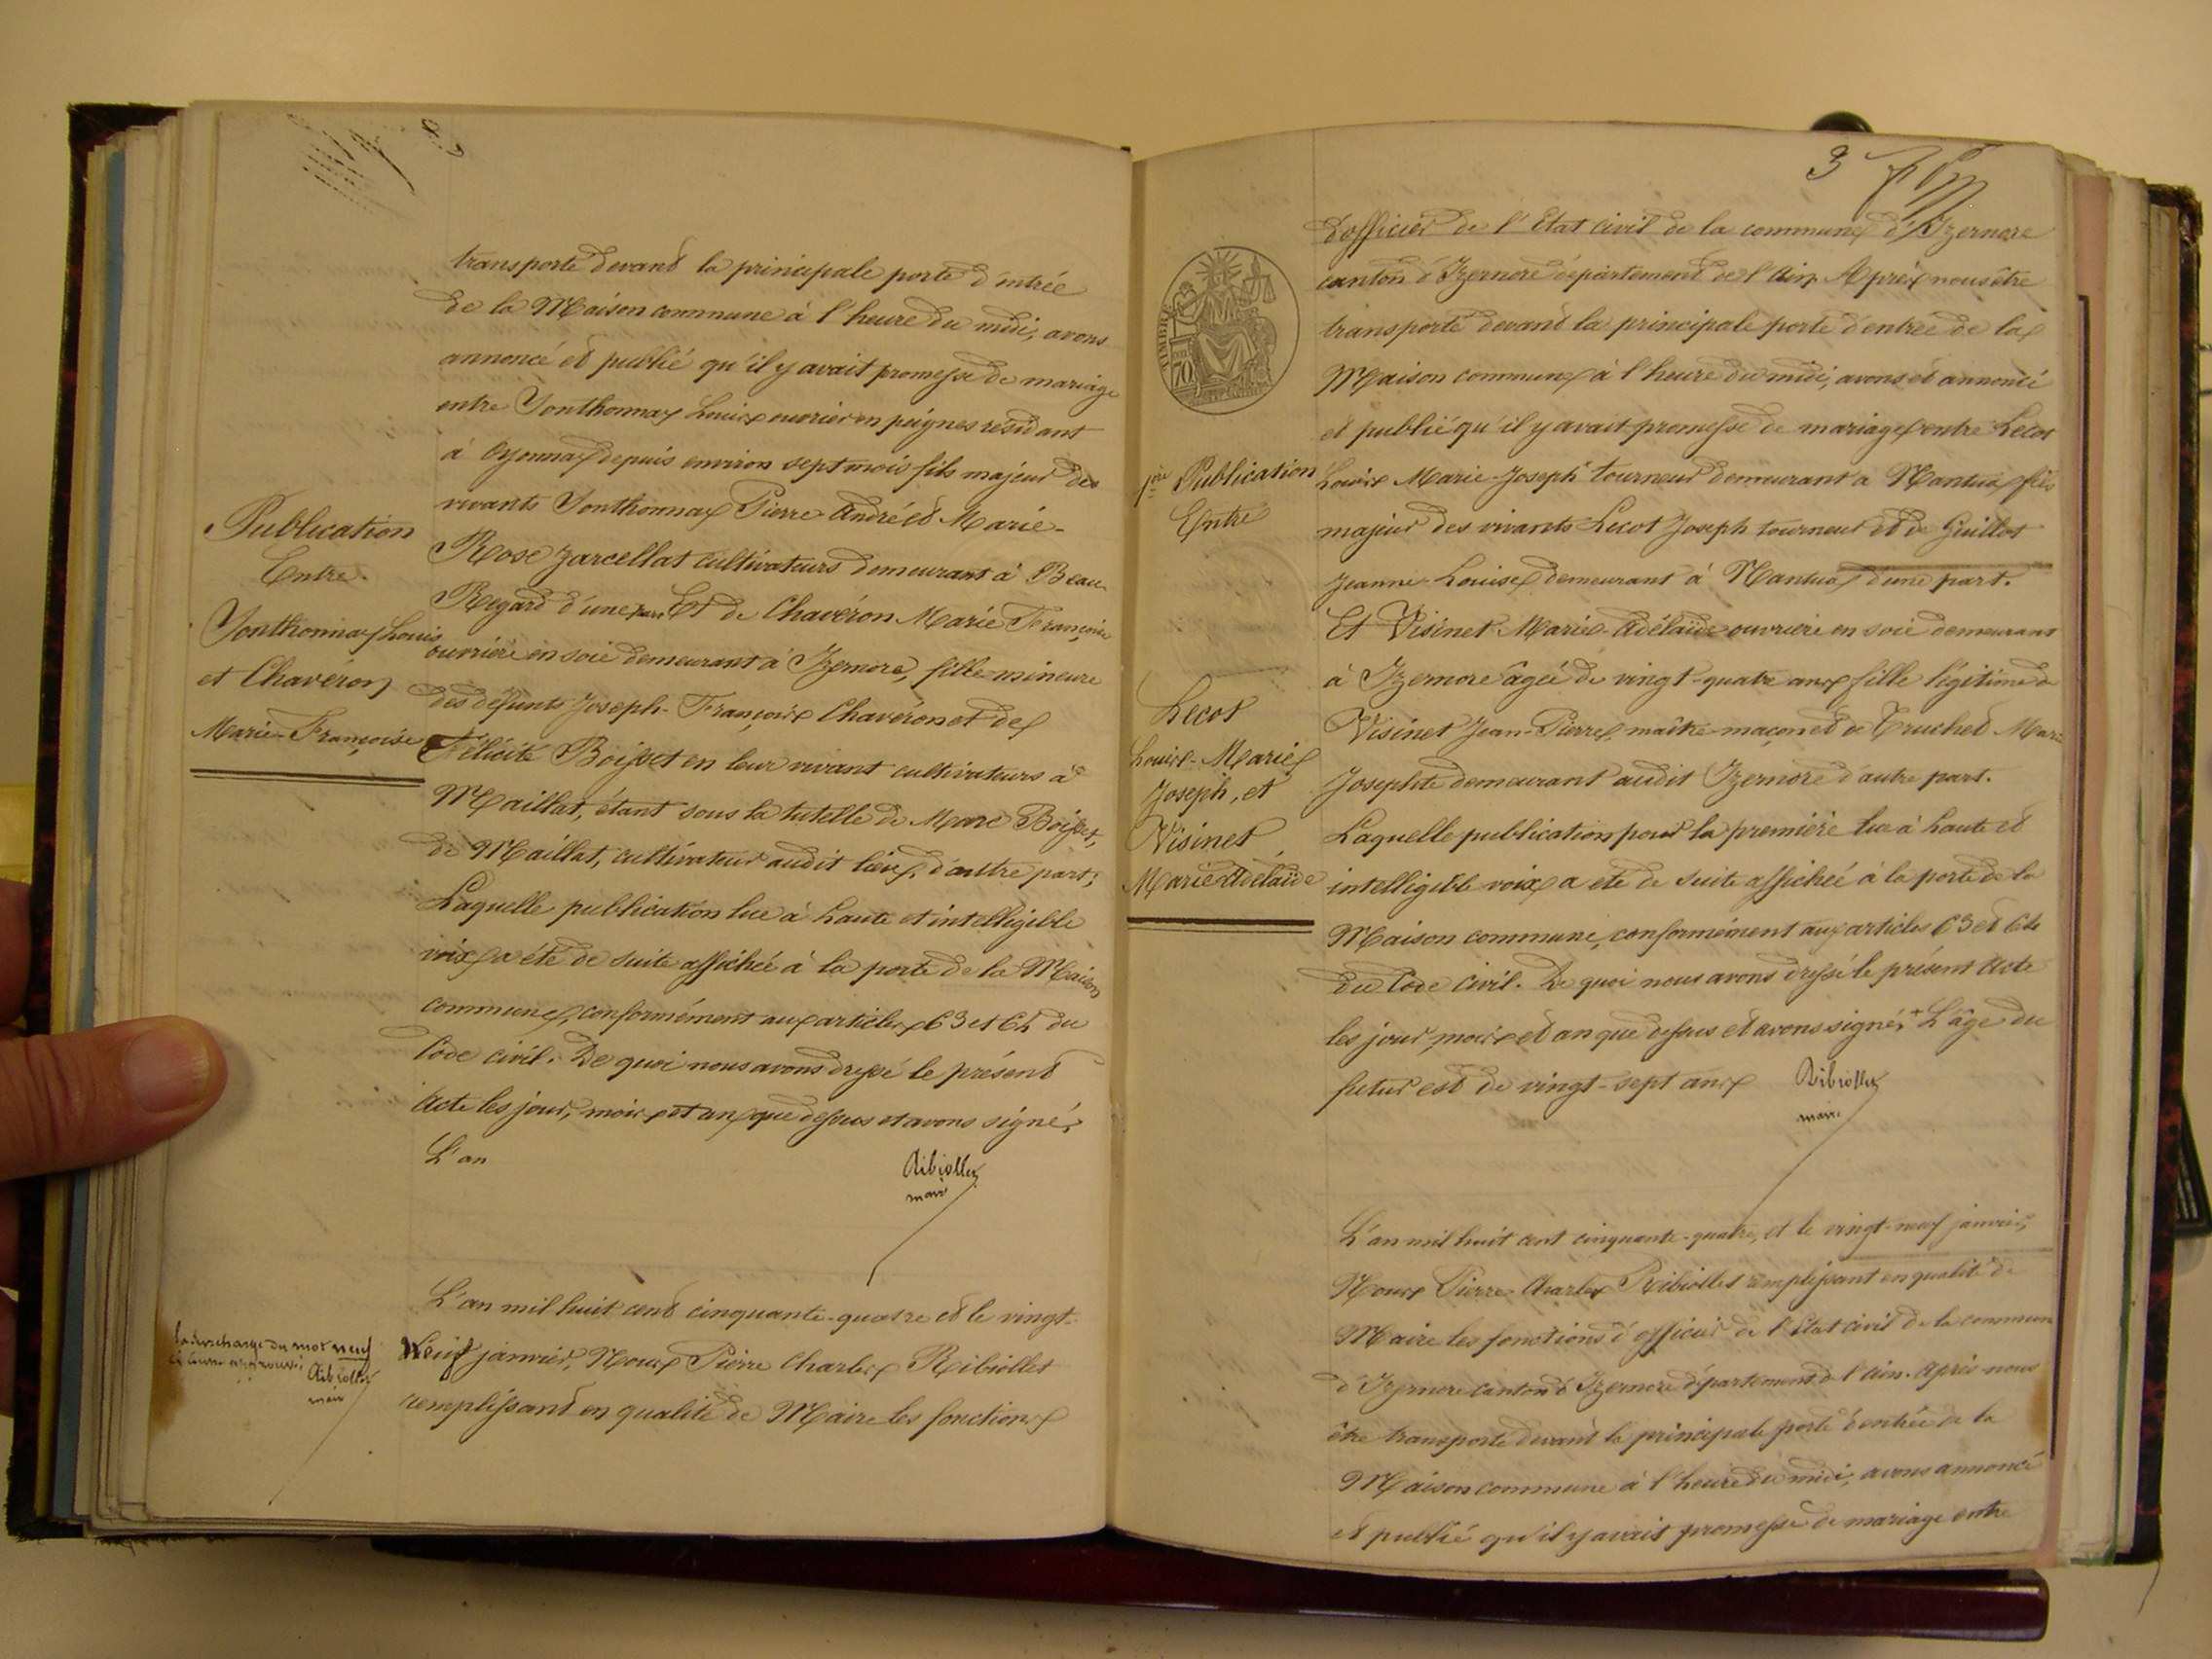 transporté devant la principale porte d'entrée
de la Maison commune à l'heure du midi, avons
annoncé et publié qu'il y avait promesse de mariage
entre Jonthonnax Louis ouvrier en peignes résidant
à Oyonnax depuis environ sept mois fils majeur des
vivants Jonthonnax Pierre André et Marie-
Rose Jarcellat cultivateurs demeurant à Beau
Regard d'une part Et de Chavéron Marie Françoise
ouvrière en soie demeurant à Izernore, fille mineure
des défunts Joseph-François Chavéron et de
Félicité Boisset en leur vivant cultivateurs à
Maillat, étant sous la tutelle de Marc Boisset,
de Maillat, cultivateur audit lieu, d'autre part;
Laquelle publication lue à haute et intelligible
voix a été de suite affichée à la porte de la Maison
commune conformément aux articles 63 et 64 du
Code civil. De quoi nous avons dressé le présent
Acte les jour, mois et an que dessus et avons signé,
L'an
Ribiollet
maire
Publication
Entre
Jonthonnax Louis
et Chavéron
Marie-Françoise
L'an mil huit cent cinquante-quatre et le vingt-
Neuf janvier, Nous Pierre Charles Ribiollet
remplissant en qualité de Maire les fonctions
la surcharge du mot neuf
approuvée
Ribiollet
maire
3
d'officier de l'Etat civil de la commune d'Izernore
canton d'Izernore département de l'Ain Après nous être
transporté devant la principale porte d'entrée de la
Maison commune à l'heure du midi, avons et annoncé
et publié qu'il y avait promesse de mariage entre Lecot
Louis Marie-Joseph tourneur demeurant à Nantua fils
majeur des vivants Lecot Joseph tourneur et de Guillot
Jeanne-Louise demeurant à Nantua d'une part.
Et Visinet Marie-Adélaïde ouvrière en soie demeurant
à Izernore âgée de vingt-quatre ans fille légitime de
Visinet Jean-Pierre, maître-maçon et de Truchet Marie
Josephte demeurant audit Izernore d'autre part.
Laquelle publication pour la première lue à haute et
intelligible voix a été de suite affichée à la porte de la
Maison commune, conformément aux articles 63 et 64
du Code civil. De quoi nous avons dressé le présent Acte
les jour, mois et an que dessus et avons signé, + L'âge du
futur est de vingt-sept ans
Ribiollet
maire
TIMBRE
70
1ère Publication
Entre
Lecot
Louis-Marie
Joseph, et
Visinet
Marie Adélaïde
L'an mil huit cent cinquante-quatre, et le vingt-neuf janvier,
Nous Pierre Charles Ribiollet remplissant en qualité de
Maire les fonctions d'officier de l'Etat civil de la commune
d'Izernore canton d'Izernore département de l'Ain. Après nous
être transporté devant la principale porte d'entrée de la
Maison commune à l'heure du midi, avons annoncé
et publié qu'il y avait promesse de mariage entre